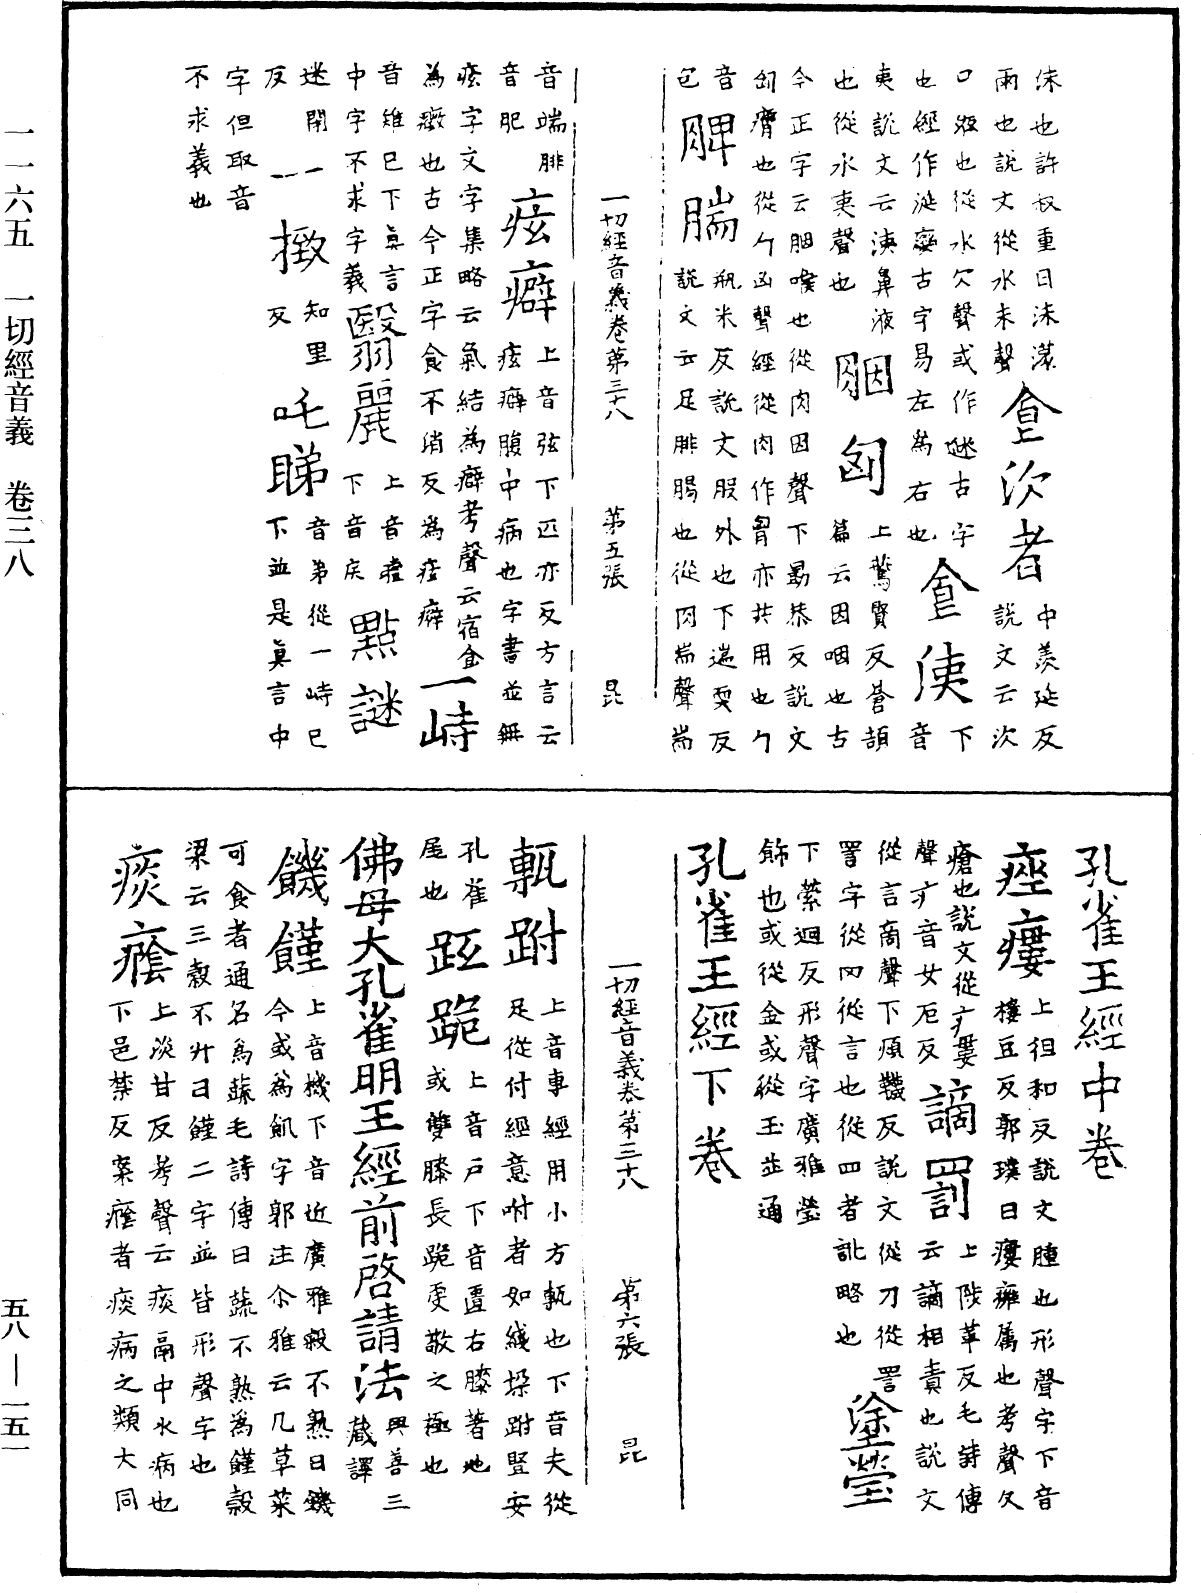 一一六五　一切經音義　卷三八
五八—一五一
沫也許叔重曰沫潻
雨也說文從水未聲
㿽次者
中羨延反
說文云次
口液也從水欠聲或作㳄古字
也經作涎變古字易左為右也
㿽洟
下
音
夷說文云洟鼻液
也從水夷聲也
胭匈
上鷰賢反蒼頡
篇云因咽也古
今正字云胭喉也從肉因聲下勗恭反說文
匈膺也從勹凶聲經從肉作胷亦共用也勹
音
包
髀腨
瓶米反說文股外也下遄耎反
說文云足腓腸也從肉耑聲耑
一切經音義卷第三十八　第五張　昆
音端腓
音肥
痃癖
上音弦下匹亦反方言云
痃癖腹中病也字書並無
痃字文字集略云氣結為癖考聲云宿食
為癥也古今正字食不消反為痃癖
一峙
音雉已下真言
中字不求字義
翳麗
上音瞖
下音戾
點謎
迷閉
反
一一撴
知里
反
吒睇
音弟從一峙已
下並是真言中
字但取音
不求義也
孔雀王經中卷
痤瘻
上徂和反說文腫也形聲字下音
樓豆反郭璞曰瘻癰属也考聲久
瘡也說文從疒婁
聲疒音女厄反
謫罰
上陟革反毛詩傳
云謫相責也說文
從言啇聲下煩韈反說文從刀從詈
詈字從网從言也從四者訛略也
塗瑩
下縈迴反形聲字廣雅瑩
飾也或從金或從玉並通
孔雀王經下卷
一切經音義卷第三十八　第六張　昆
甎跗
上音專經用小方甎也下音夫從
足從付經意咐者如綫垜跗竪安
孔雀
尾也
跒跪
上音戸下音匱右膝著地
或雙膝長跪更敬之極也
佛母大孔雀明王經前啓請法
興善三
藏譯
饑饉
上音機下音近廣雅穀不熟曰饑
今或為飢字郭注尒雅云凡草菜
可食者通名為蔬毛詩傳曰蔬不熟為饉穀
梁云三穀不升曰饉二字並皆形聲字也
痰癊
上淡甘反考聲云痰鬲中水病也
下邑禁反案癊者痰病之類大同